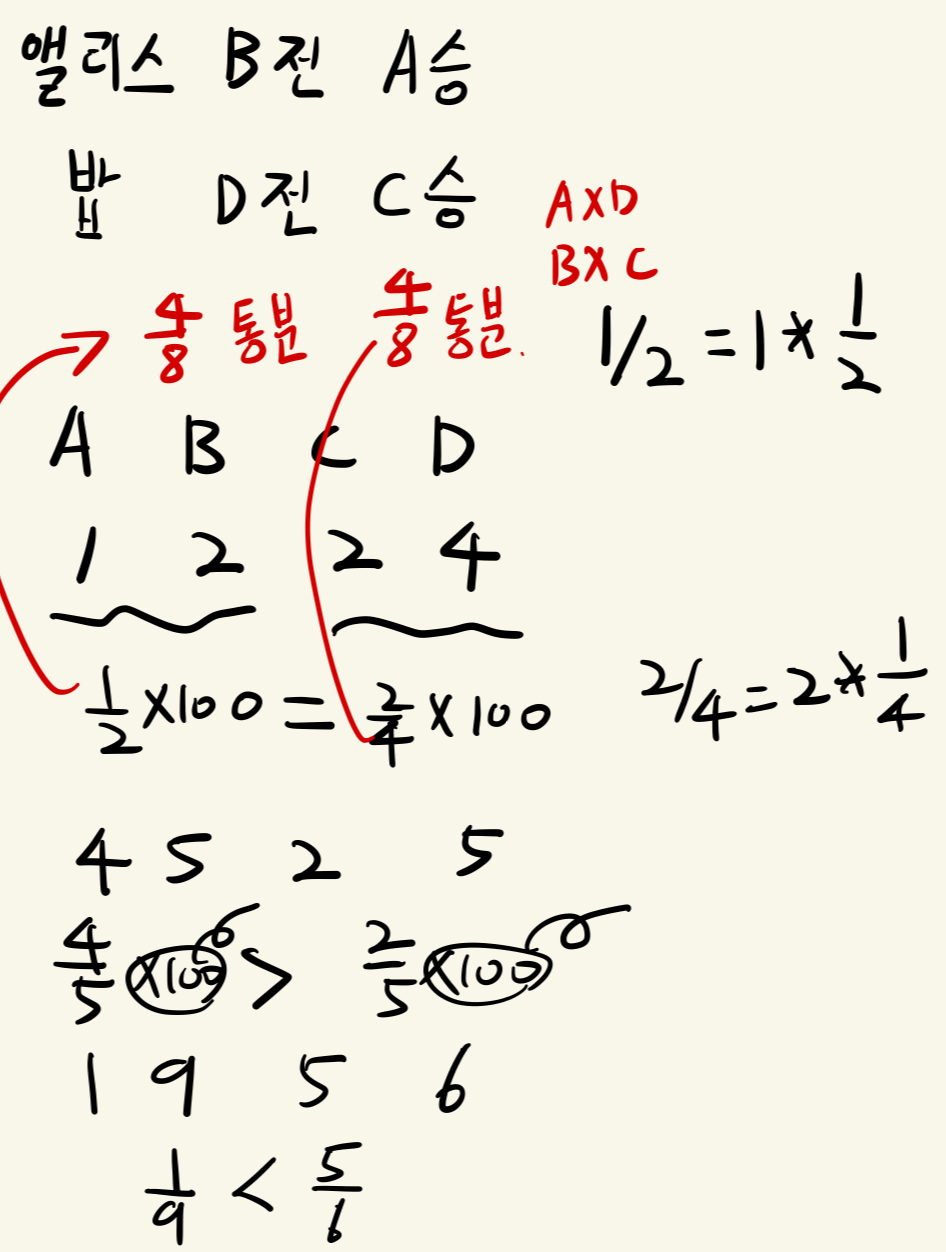 앨리스 B전 A승
밥 D전 C승
A×D
B×C
4/8 통분 4/8 통분.
1/2 = 1 * 1/2
A B C D
1 2 2 4
1/2 ×100 = 2/4 ×100
2/4 = 2 * 1/4
4 5 2 5
4/5 ×100 > 2/5 ×100
1 9 5 6
1/9 < 5/6